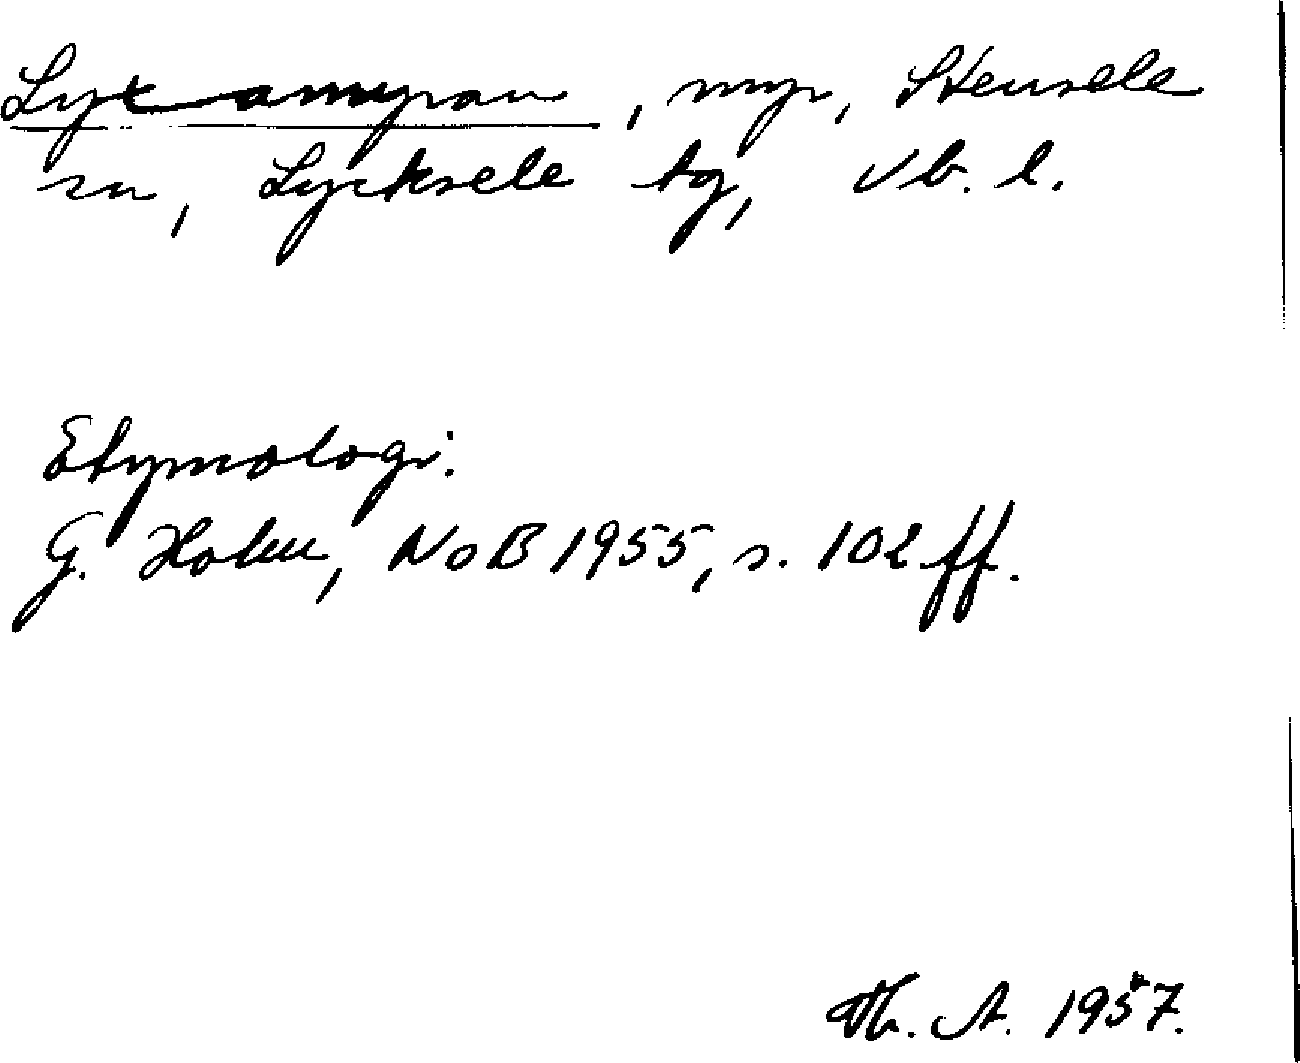 Lyxamyran, myr, Stensele
sn, Lycksele tg, Vb. l.
Etymologi:
G. Holm, NoB 1955, s. 102 ff.
Th. A. 1957.